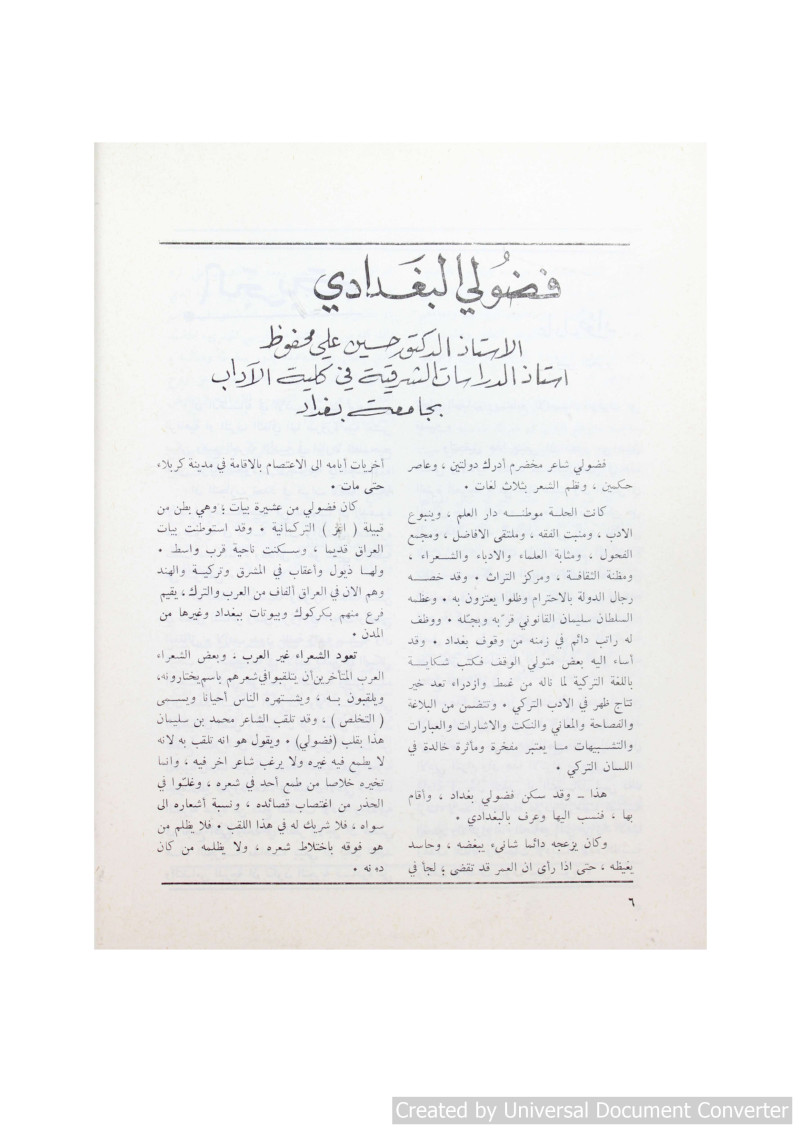 فضُولي البغَدادي
الاستاذ الدكتور حسين علي محفوظ
استاذ الدراسات الشرقية في كلية الآداب
بجامعة بغداد
فضولي شاعر مخضرم أدرك دولتين ، وعاصر
حكمين ، ونظم الشعر بثلاث لغات ٠
كانت الحلة موطنه دار العلم ، وينبوع
الادب ، ومنبت الفقه ، وملتقى الافاضل ، ومجمع
الفحول ، ومثابة العلماء والادباء والشعراء ،
ومظنة الثقافة ، ومركز التراث ٠ وقد خصه
رجال الدولة بالاحترام وظلوا يعتزون به ٠ وعظمه
السلطان سليمان القانوني قرّبه وبجّله ٠ ووظف
له راتب دائم في زمنه من وقوف بغداد ٠ وقد
أساء اليه بعض متولي الوقف فكتب شكاية
باللغة التركية لما ناله من غمط وازدراء تعد خير
نتاج ظهر في الادب التركي ٠ وتتضمن من البلاغة
والفصاحة والمعاني والنكت والاشارات والعبارات
والتشبيهات ما يعتبر مفخرة ومأثرة خالدة في
اللسان التركي ٠
هذا ــ وقد سكن فضولي بغداد ، وأقام
بها ، فنسب اليها وعرف بالبغدادي ٠
وكان يزعجه دائما شانىء يبغضه ، وحاسد
يغيظه ، حتى اذا رأى ان العمر قد تقضى ؛ لجأ في
أخريات أيامه الى الاعتصام بالاقامة في مدينة كربلاء
حتى مات ٠
كان فضولي من عشيرة بيَات ؛ وهي بطن من
قبيلة ( اغز ) التركمانية ٠ وقد استوطنت بيات
العراق قديما ، وسكنت ناحية قرب واسط ٠
ولها ذيول وأعقاب في المشرق وتركية والهند
وهم الان في العراق ألفاف من العرب والترك ، يقيم
فرع منهم بكركوك وبيوتات ببغداد وغيرها من
المدن ٠
تعود الشعراء غير العرب ، وبعض الشعراء
العرب المتأخرين أن يتلقبوا في شعرهم باسم يختارونه،
ويلقبون به ، ويشتهره الناس أحيانا ويسمى
( التخلص ) ، وقد تلقب الشاعر محمد بن سليمان
هذا بلقب (فضولي) ٠ ويقول هو انه تلقب به لانه
لا يطمع فيه غيره ولا يرغب شاعر اخر فيه ، وانما
تخيره خلاصا من طمع أحد في شعره ، وغلّوا في
الحذر من اغتصاب قصائده ، ونسبة أشعاره الى
سواه ، فلا شريك له في هذا اللقب ٠ فلا يظلم من
هو فوقه باختلاط شعره ، ولا يظلمه من كان
دونه ٠
٦
Created by Universal Document Converter